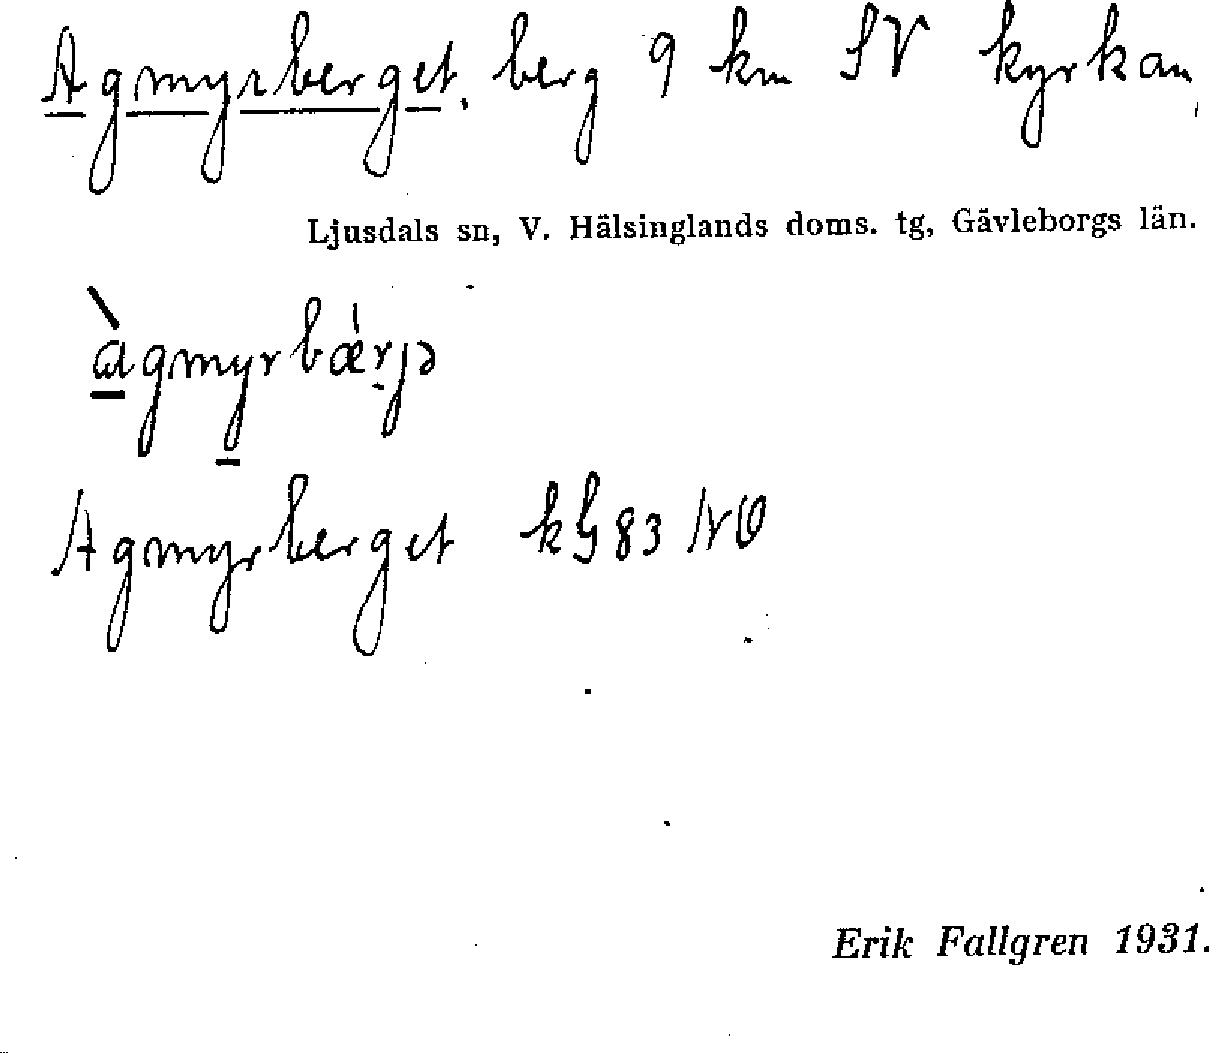 Agmyrberget, berg 9 km SV kyrkan,
Ljusdals sn, V. Hälsinglands doms. tg, Gävleborgs län.
àgmyrbǽrjə
Agmyrberget kG 83 NO
Erik Fallgren 1931.